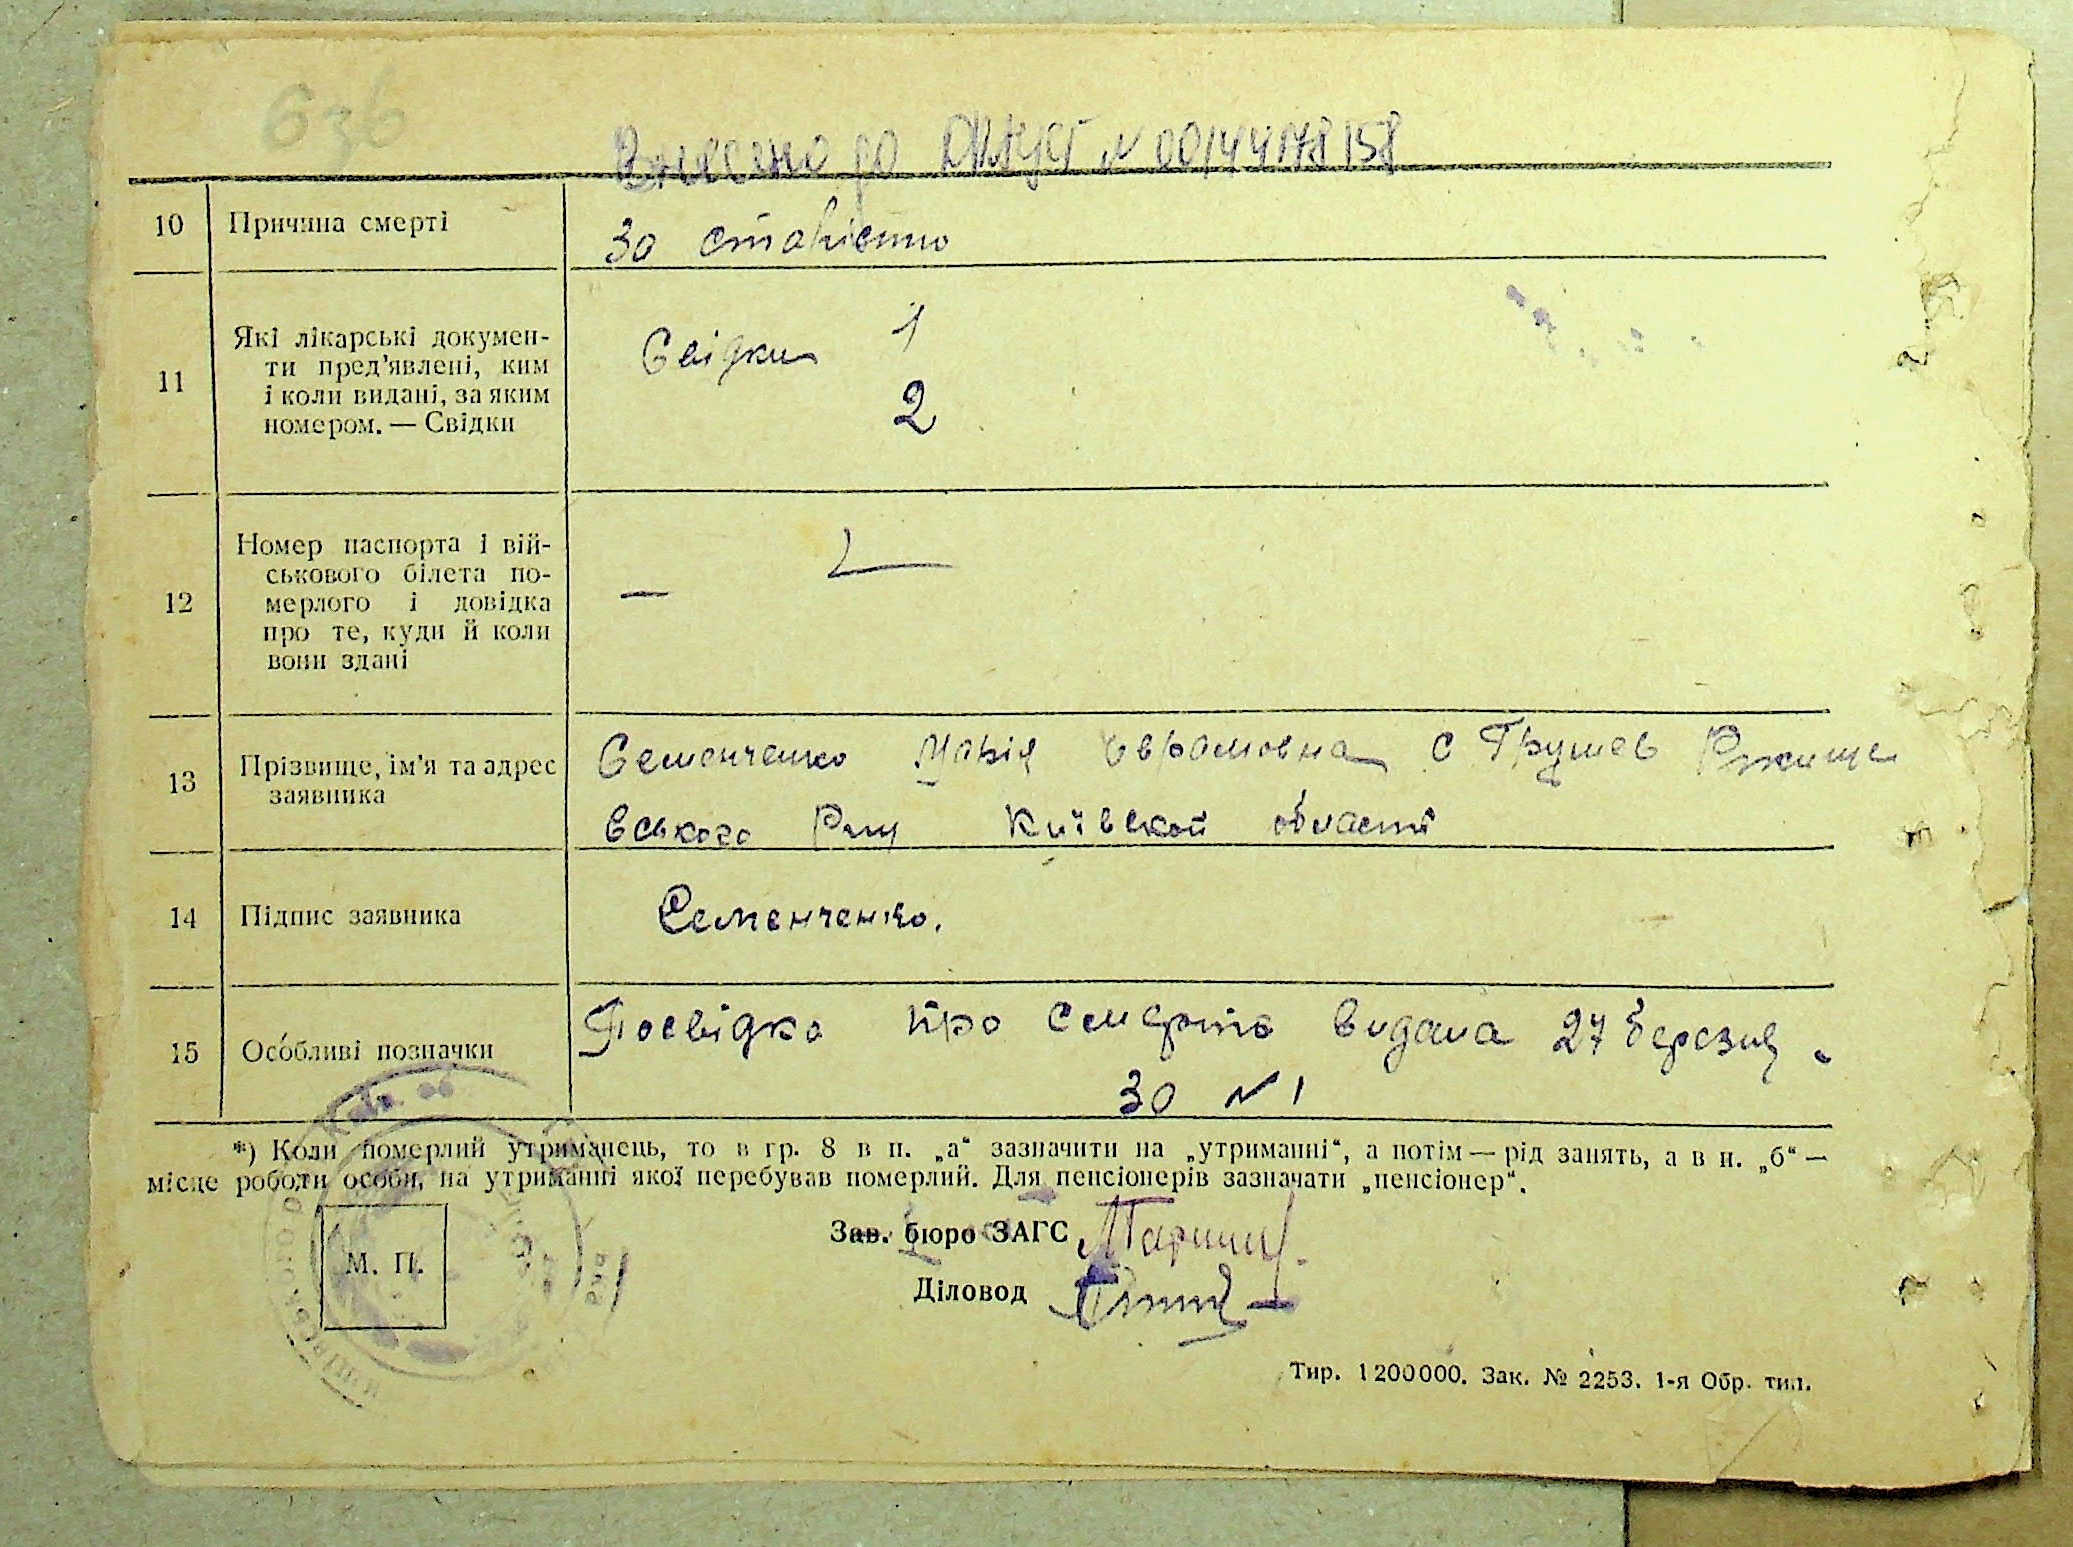 636
Внесено до ДРАЦС N 00144178158
10 Причина смерті За старістю
11 Які лікарські документи пред'явлені, ким і коли видані, за яким номером. — Свідки
Свідки 1
2
12 Номер паспорта і військового білета померлого і довідка про те, куди й коли вони здані
—
13 Прізвище, ім'я та адрес заявника
Семенченко Марія Єврамовна с Грушев Ржище
вського Київской області
14 Підпис заявника Семенченко.
15 Особливі позначки
Посвідка про смерть видана 27 березня.
За N 1
*) Коли померлий утриманець, то в гр. 8 в п. „а“ зазначити на „утриманні“, а потім — рід занять, а в п. „б“ —
місце роботи особи, на утриманні якої перебував померлий. Для пенсіонерів зазначати „пенсіонер“.
М. П.
Зав. бюро ЗАГС
Діловод
Тир. 1 200 000. Зак. № 2253. 1-я Обр. тип.